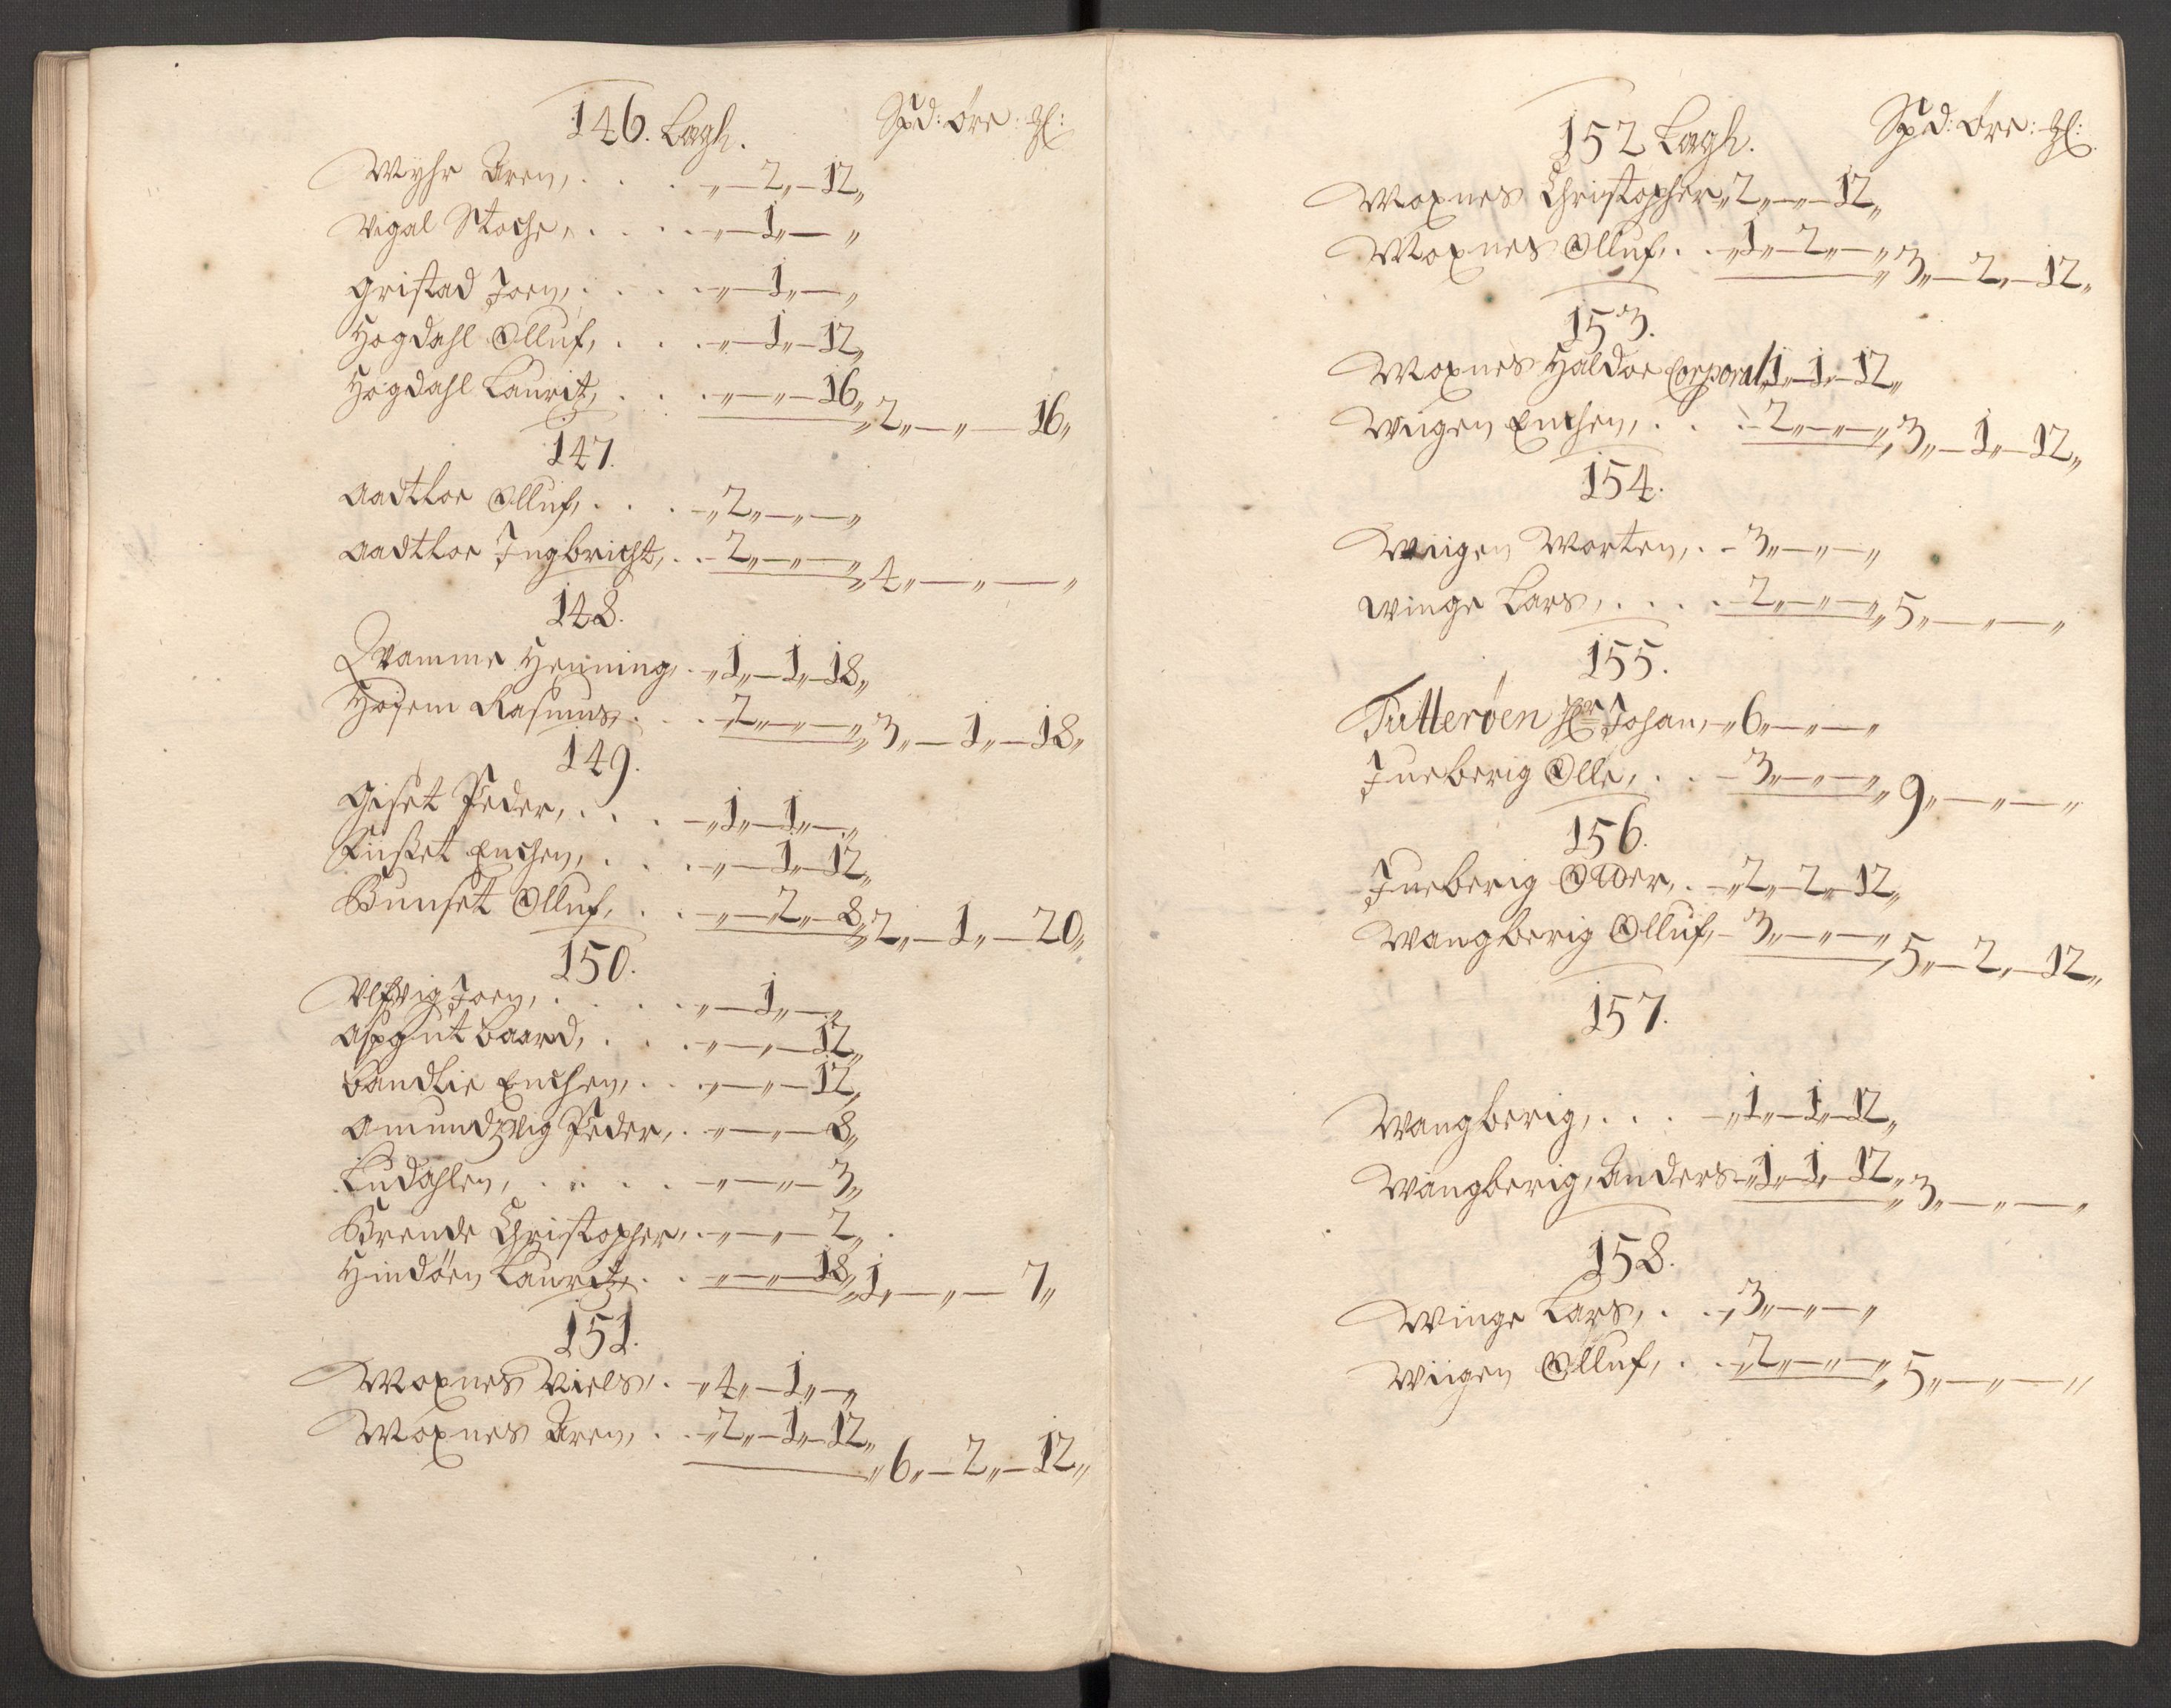 146. Lagh. Spd: öre: gl:
Myhr Aren, . . . „—2„—12„
Vigal Stoche, . . . . „—1„— „
Gristad Joen, . . . . „—1„— „
Hogdahl Olluf, . . . „—1„—12„
Hogdahl Lauritz, . . . „—„—16„ 2„—„—16„
147.
Aadthoe Olluf, . . . „2„—„—„
Aadthoe Ingbricht, . . 2„—„—„ 4„—„—„
148.
Qvamme Henning, . „1„—1„—18„
Hojem Rasmus, . . . 2„—„—„ 3„—1„—18„
149.
Giset Peder, . . . „1„—1„—„
Enchen, . . . „—1„—12„
Bunset Olluf, . . „—2„—8„ 2„—1„—20„
150.
Ulfvig Joen, . . . . „—1„—„
Aspgut Baard, . . . „—„—12„
Sandlie Enchen, . . . „—„—12„
Amundzvig Peder, . „—„—8„
Ludahlen, . . . . . „—„—3„
Brende Christopher, . „—„—2„
Hindöen Lauritz, . . „—„—18„ 1„—„—7„
151.
Moxnes Niels, . „4„—1„—„
Moxnes Aren, . . „2„—1„—12„ 6„—2„—12„
152 Lagh. Spd: Öre: gl:
Moxnes Christopher, „2„—„—12„
Moxnes Olluf, . . „1„—2„—„ 3„—2„—12„
153.
Moxnes Haldoe Corporal, 1„—1„—12„
Wiigen Enchen, . . . 2„—„—„ 3„—1„—12„
154.
Wiigen Morten, . 3„—„—„
Winge Lars, . . . . 2„—„—„ 5„—„—„
155.
Tutterøen Hr Johan, „6„—„—„
Jueberig Olle, . . 3„—„—„ 9„—„—„
156.
Jueberig Older, . „2„—2„—12„
Wangberig Olluf, 3„—„—„ 5„—2„—12„
157.
Wangberig, . . . „1„—1„—12„
Wangberig, Anders „1„—1„—12„ 3„—„—„
158.
Winge Lars, . . 3„—„—„
Wiigen Olluf, . . 2„—„—„ 5„—„—„